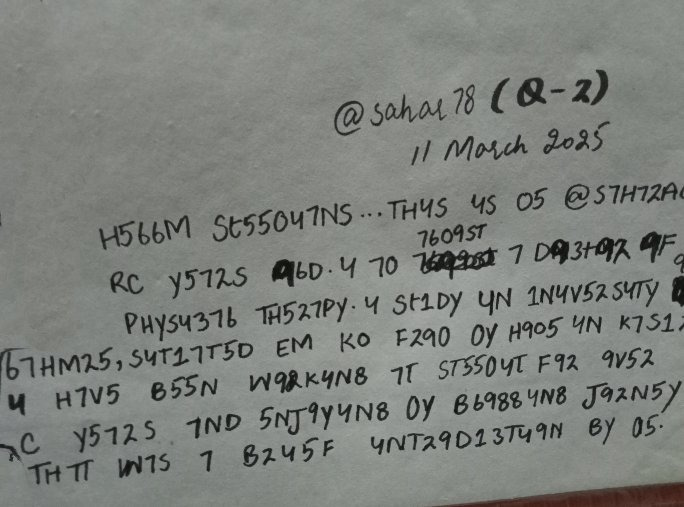 @sahar78 (Q-2)
11 March 2025
H566M St55047NS...TH4S 4S 05 @S7H72A
7609ST
RC Y572S 96D. 4 70 7 D93t92 9F
PHYS4376 TH527PY. 4 St1DY 4N 1N4V52S4TY
67HM25, S4T17T5D EM KO F290 0Y H905 4N K7S1
4 H7V5 B55N W92K4N8 7T ST5504T F92 9V52
C Y572S 7ND 5NJ9Y4N8 0Y B69884N8 J92N5Y
TH7T W7S 7 B245F 4NT29D13T49N BY 05.